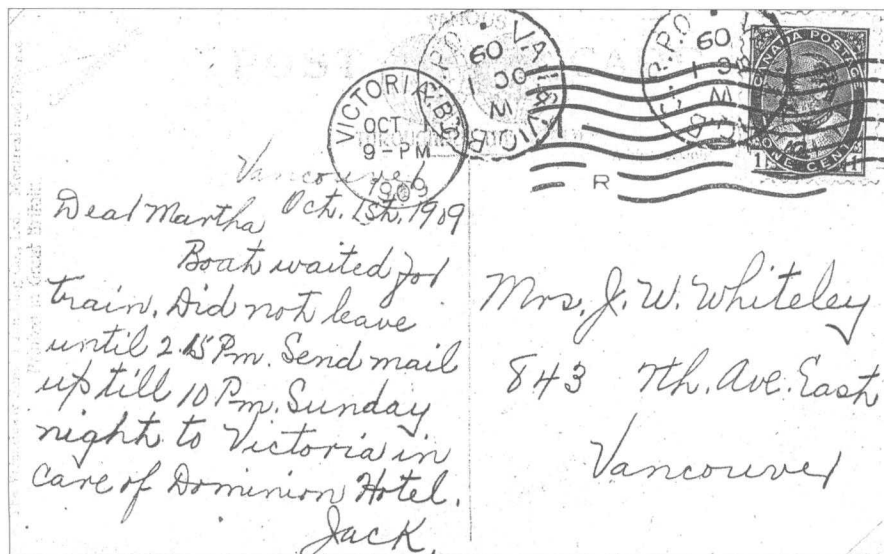 FAMOUS
VAN & VIC
R.P.O.
OC 1
09
M
B.C.
R.P.O.
OC 1
09
M
CANADA POSTAGE
ONE CENT
1 1
VICTORIA, B.C.
OCT 1
9-PM
1909
R
Vancouver
Oct. 1st, 1909
Dear Martha
Boat waited for
train. Did not leave
until 2.15 Pm. Send mail
up till 10 Pm. Sunday
night to Victoria in
care of Dominion Hotel.
Jack.
Mrs. J. W. Whiteley
843 7th. Ave. East
Vancouver